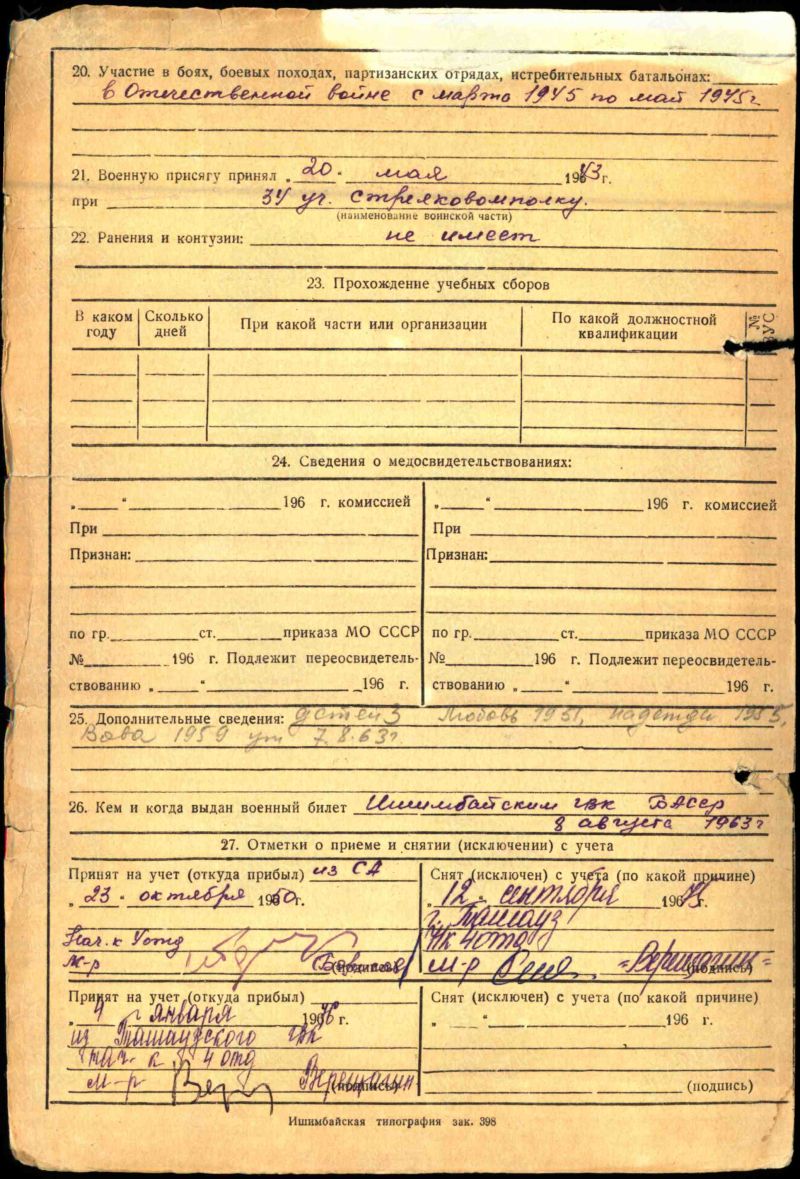 20. Участие в боях, боевых походах, партизанских отрядах, истребительных батальонах:
в Отечественной войне с марта 1945 по май 1945г
21. Военную присягу принял „20" мая 1943 г.
при 34 уч. стрелковом полку.
(наименование воинской части)
22. Ранения и контузии: не имеет
23. Прохождение учебных сборов
В каком году Сколько дней При какой части или организации По какой должностной квалификации № ВУС
24. Сведения о медосвидетельствованиях:
„ " 196 г. комиссией
При
Признан:
по гр. ст. приказа МО СССР
№ 196 г. Подлежит переосвидетель-
ствованию „ " 196 г.
„ " 196 г. комиссией
При
Признан:
по гр. ст. приказа МО СССР
№ 196 г. Подлежит переосвидетель-
ствованию „ " 196 г.
25. Дополнительные сведения: детей 3 Любовь 1951, надежда 1955,
Вова 1959 7.8.63г
26. Кем и когда выдан военный билет Ишимбайским гвк БАССР
8 августа 1963 г
27. Отметки о приеме и снятии (исключении) с учета
Принят на учет (откуда прибыл) из СА
„23" октября 1950 г.
Нач. к
м-р (подпись)
Снят (исключен) с учета (по какой причине)
„12" сентября г.
г. Ташауз
Нк 4 отд
м-р Верещагин (подпись)
Принят на учет (откуда прибыл)
„4" января 1976 г.
из Ташаузского гвк
Нач. к 4 отд
м-р Верещагин (подпись)
Снят (исключен) с учета (по какой причине)
„ " 196 г.
(подпись)
Ишимбайская типография зак. 398